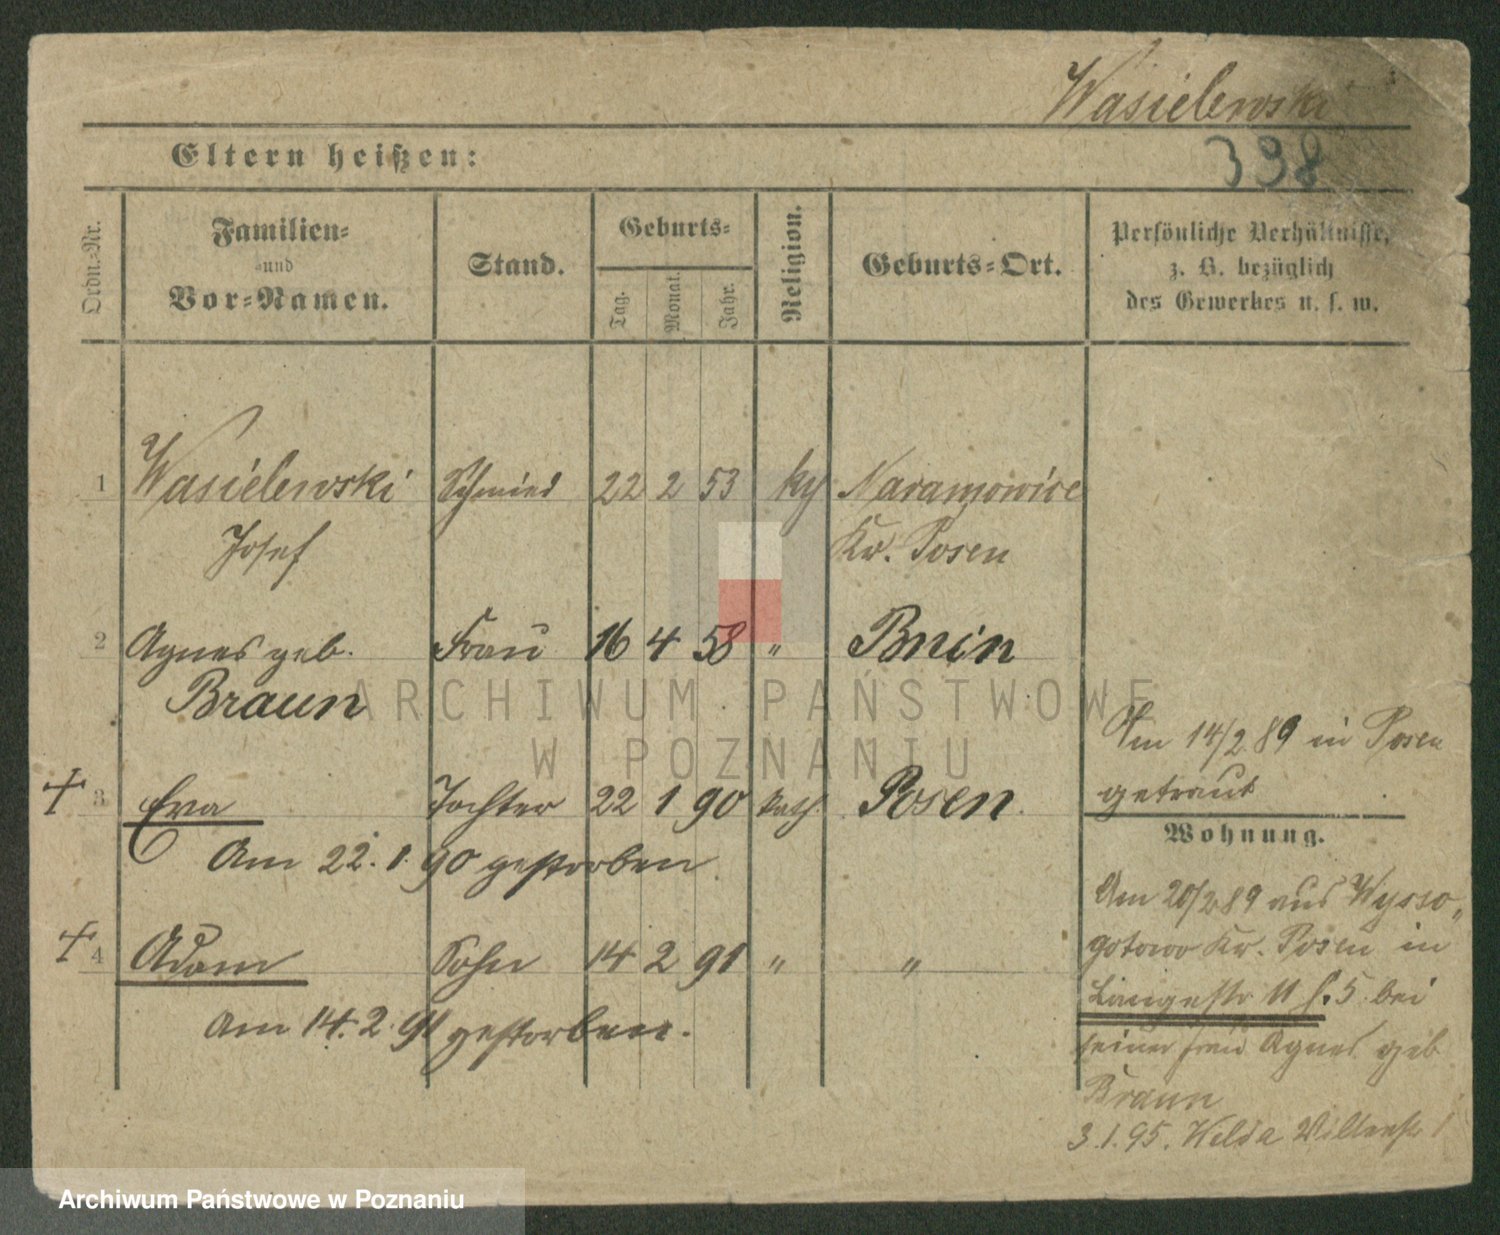 Wasielewski
398
Eltern heißen:
Ordn.-Nr.
Familien-
und
Vor-Namen.
Stand.
Geburts-
Tag.
Monat.
Jahr.
Religion.
Geburts-Ort.
Persönliche Verhältnisse,
z. B. bezüglich
des Gewerbes u. s. w.
1 Wasielewski Schmied 22 2 53 Naramowice
Josef Kr. Posen
2 Agnes geb. Frau 16 4 58 " Bnin
Braun
Am 14/2 89 in Posen
getraut
+ 3 Eva Tochter 22 1 90 kath. Posen.
Am 22. 1. 90 gestorben.
Wohnung.
Am 20/2 89 aus Wysso-
gotowo Kr. Posen in
Langestr 11 b. 5 bei
seiner Frau Agnes geb
Braun
3.1.95. Wilda
+ 4 Adam Sohn 14 2 91 " "
Am 14. 2. 91 gestorben.
ARCHIWUM PAŃSTWOWE
W POZNANIU
Archiwum Państwowe w Poznaniu